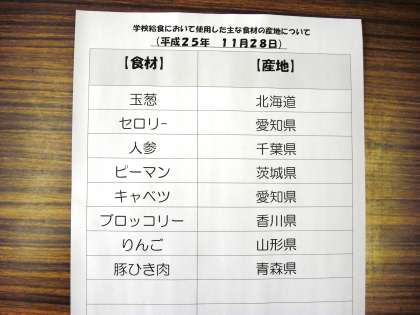 学校給食において使用した主な食材の産地について
(平成25年 11月28日)
【食材】 【産地】
玉葱 北海道
セロリー 愛知県
人参 千葉県
ピーマン 茨城県
キャベツ 愛知県
ブロッコリー 香川県
りんご 山形県
豚ひき肉 青森県